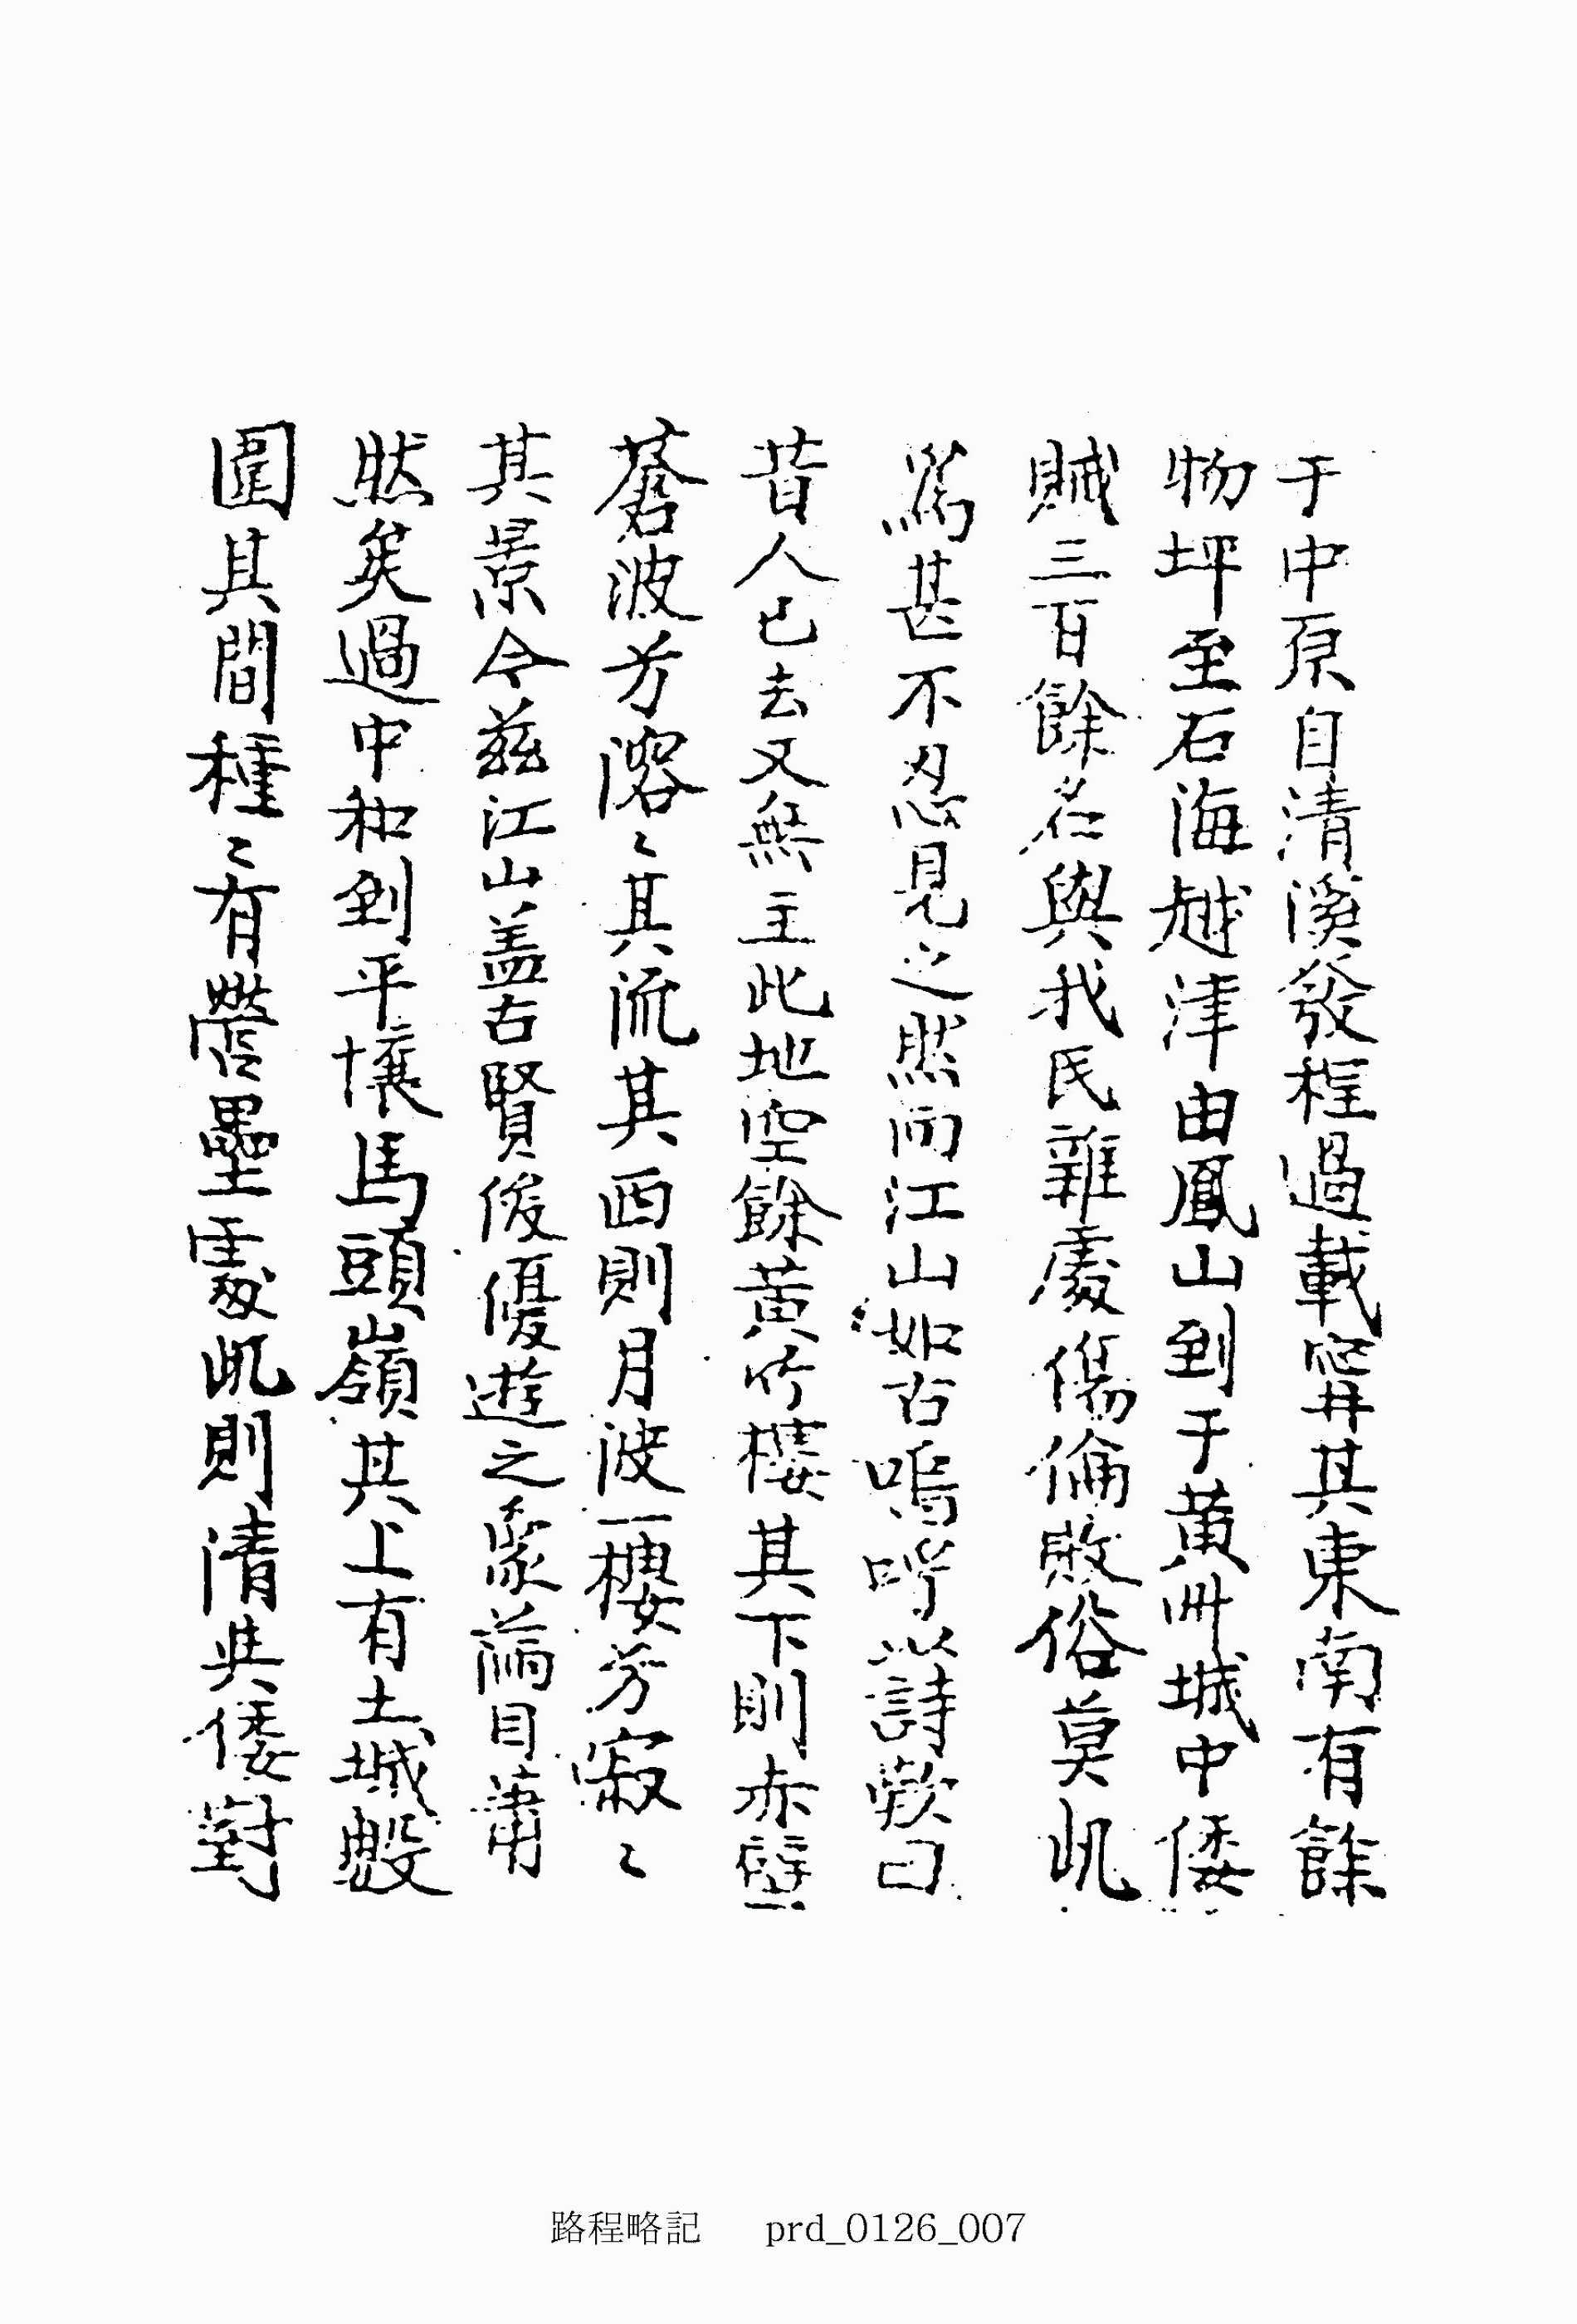 于中原自清溪發程過載寧其東南有餘
物坪至石海越津由鳳山到于黃州城中倭
賊三百餘名與我民雜處傷倫敗俗莫此
爲甚不忍見之然而江山如古嗚呼以詩歎曰
昔人已去又無主此地空餘黃竹樓其下則赤壁
蒼波兮溶〻其流其西則月波樓兮寂〻
其景今茲江山盖古賢後優遊之象滿目蕭
然矣過中和到平壤馬頭嶺其上有土城毀
圍其間種〻有營壘處此則清與倭對